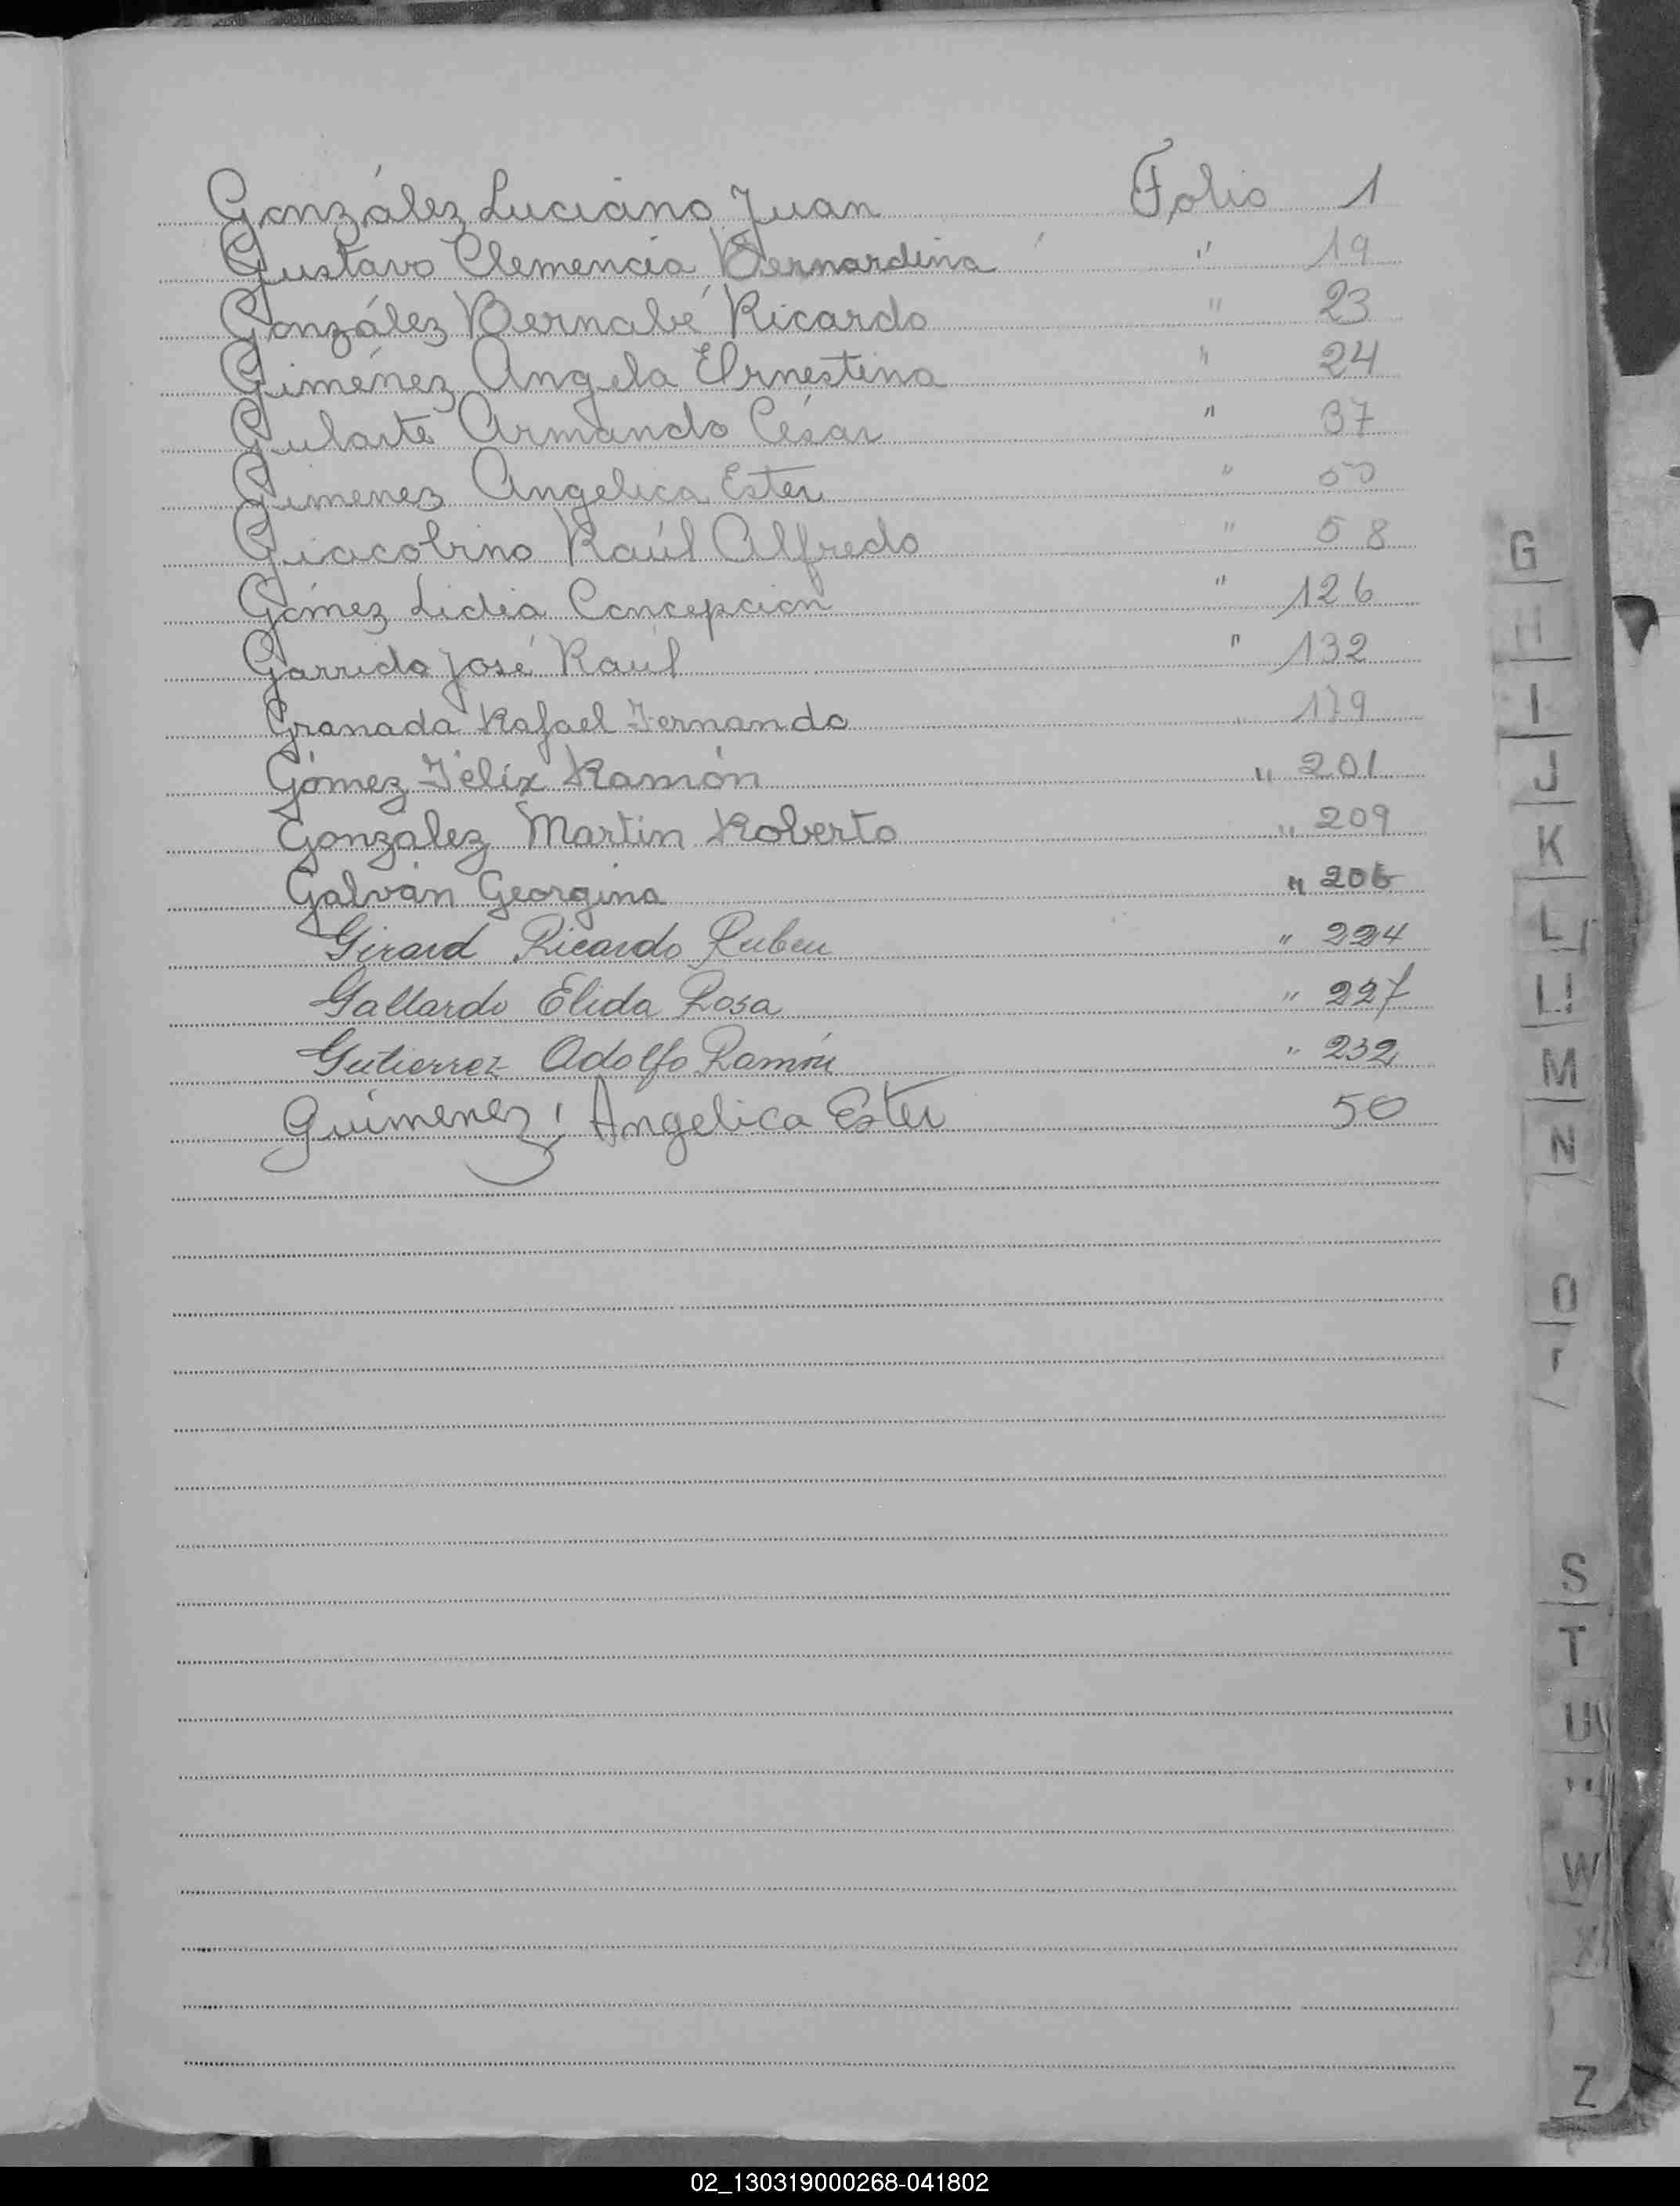 González Luciano Juan Folio 1
Gustavo Clemencia Bernardina " 19
González Bernabé Ricardo " 23
Giménez Angela Ernestina " 24
Gularte Armando César " 37
Gimenez Angelica Ester " 50
Giacobino Raúl Alfredo " 58
Gómez Lidia Concepción " 126
Garrido José Raúl " 132
Granada Rafael Fernando " 179
Gómez Félix Ramón " 201
González Martín Roberto " 209
Galván Georgina "
Girard Ricardo Ruben " 224
Gallardo Elida Rosa " 227
Gutierrez Adolfo Ramón " 232
Guimenez; Angelica Ester 50
G
H
I
J
K
L
LL
M
N
O
S
T
U
W
X
Z
02_130319000268-041802